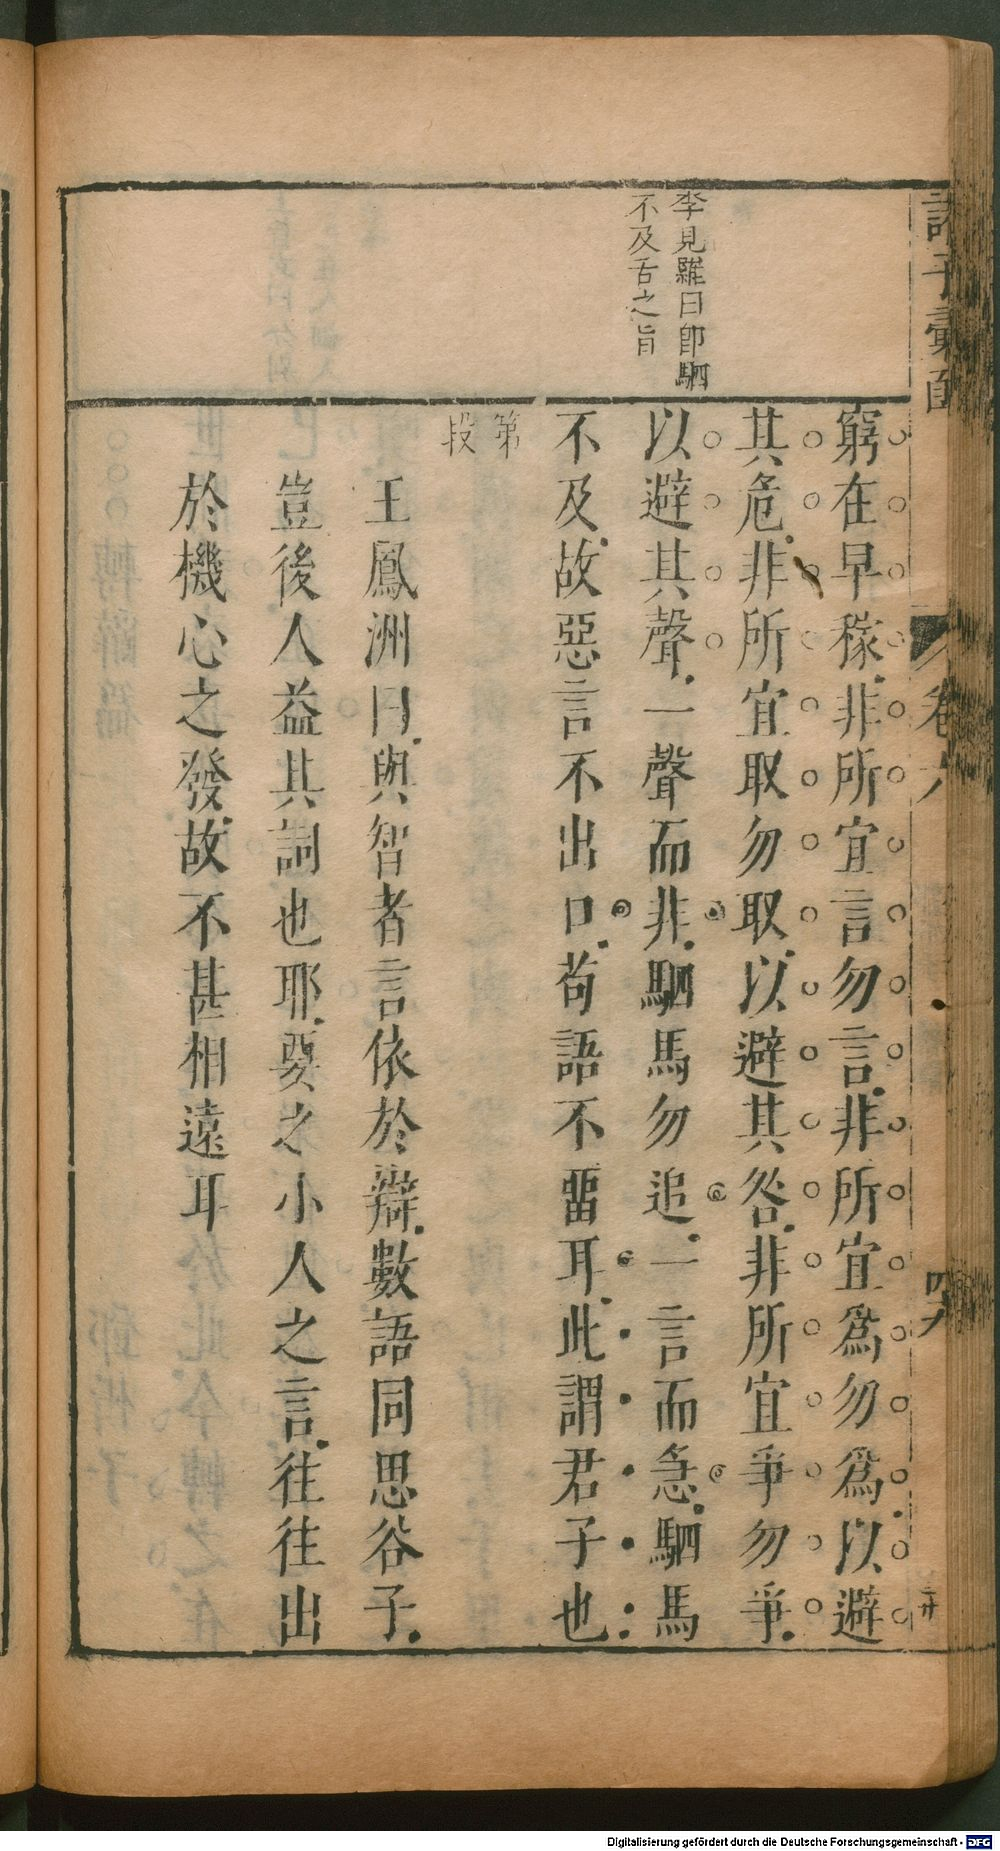 李見羅曰卽駟
不及舌之旨
窮在早稼非所宜言勿言非所宜爲勿爲以避
其危非所宜取勿取以避其咎非所宜爭勿爭
以避其聲一聲而非駟馬勿追一言而急駟馬
不及故惡言不出口苟語不畱耳此謂君子也
第
段
王鳳洲曰與智者言依於辯數語同思谷子
豈後人益其詞也耶要之小人之言往往出
於機心之發故不甚相遠耳
卷六
Digitalisierung gefördert durch die Deutsche Forschungsgemeinschaft - DFG